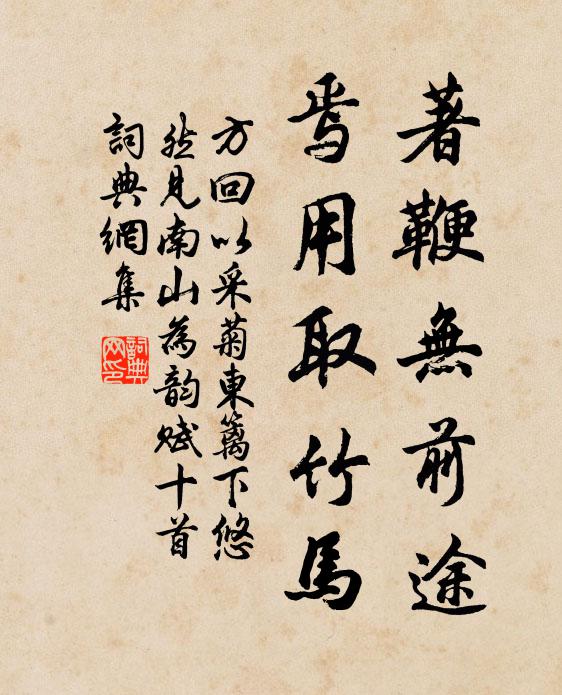 著鞭無前途
焉用取竹馬
方回以采菊東篱下悠
然見南山為韵賦十首
詞典網集
詞典網印